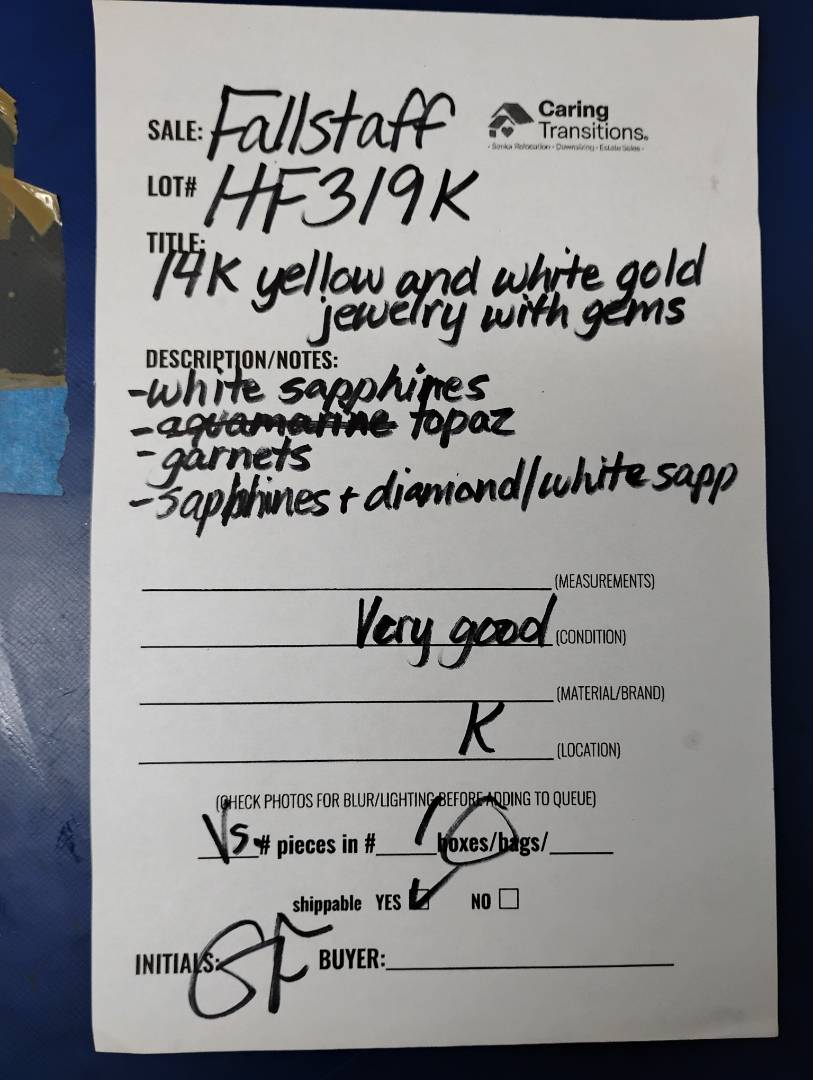 SALE: Fallstaff
Caring
Transitions.
- Senior Relocation - Downsizing - Estate Sales -
LOT# HF319K
TITLE:
14K yellow and white gold
jewelry with gems
DESCRIPTION/NOTES:
-white sapphires
-aquamarine topaz
-garnets
-sapphires + diamond/white sapp
(MEASUREMENTS)
Very good (CONDITION)
(MATERIAL/BRAND)
K (LOCATION)
(CHECK PHOTOS FOR BLUR/LIGHTING BEFORE ADDING TO QUEUE)
Vs. # pieces in # 1 boxes/bags/
shippable YES NO
INITIALS: BUYER: